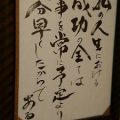 私の人生における
成功の全ては
事を常に予定より
分早したからで
ある